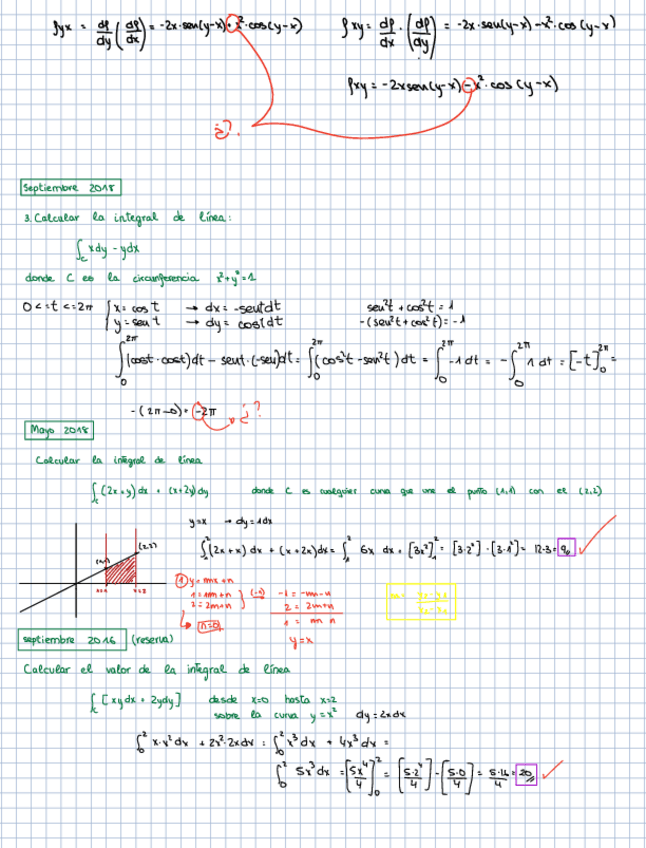 ρyx = dρ/dy (dρ/dx) = -2x·sen(y-x) + x²·cos(y-x)
ρxy = dρ/dx · (dρ/dy) = -2x·sen(y-x) - x²·cos(y-x)
ρxy = -2xsen(y-x) - x²·cos(y-x)
¿?
Septiembre 2018
3. Calcular la integral de línea:
∫c xdy - ydx
donde C es la circunferencia x²+y²=1
0<=t<=2π { x = cost → dx = -sentdt
y = sent → dy = costdt
sen²t + cos²t = 1
-(sen²t + cos²t) = -1
∫₀^2π (cost·cost)dt - sent·(-sen)dt = ∫₀^2π (cos²t - sen²t) dt = ∫₀^2π -1 dt = -∫₀^2π 1 dt = [-t]₀^2π =
-(2π-0) = -2π ¿?
Mayo 2018
Calcular la integral de línea
∫c (2x+y) dx + (x+2y) dy donde C es cualquier curva que une el punto (1,1) con el (2,2)
y=x → dy = 1dx
∫₁² (2x+x) dx + (x+2x)dx = ∫₁² 6x dx = [3x²]₁² = [3·2²] - [3·1²] = 12-3 = 9
(1,1) (2,2)
x=1 x=2
① y = mx+n
1 = 1m+n } (-1) -1 = -m-n
2 = 2m+n 2 = 2m+n
n=0 1 = m
y=x
septiembre 2016 (reserva)
Calcular el valor de la integral de línea
∫c [xydx + 2ydy] desde x=0 hasta x=2
sobre la curva y=x² dy = 2xdx
∫₀² x·x²dx + 2x²·2xdx = ∫₀² x³dx + 4x³dx =
∫₀² 5x³dx = [5x⁴/4]₀² = [5·2⁴/4] - [5·0/4] = 5·16/4 = 20